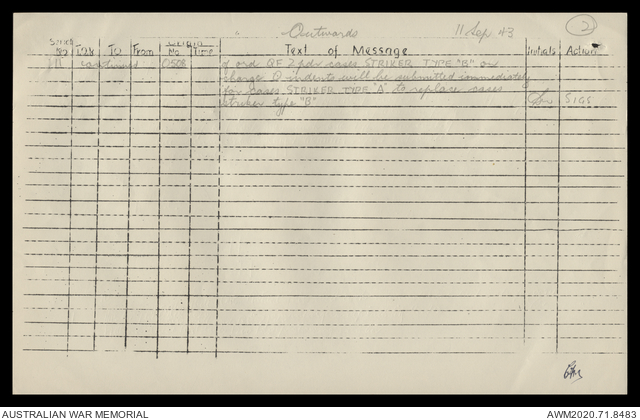 Outwards 11 Sep 43 2
Serial No I2K To From Origin No Time Text of Message Initials Action
continued 0508 of ord QF 2 pdr cases STRIKER TYPE "B" on
charge D indents will be submitted immediately
for cases STRIKER TYPE "A" to replace cases SIGS
striker type "B"
AUSTRALIAN WAR MEMORIAL AWM2020.71.8483